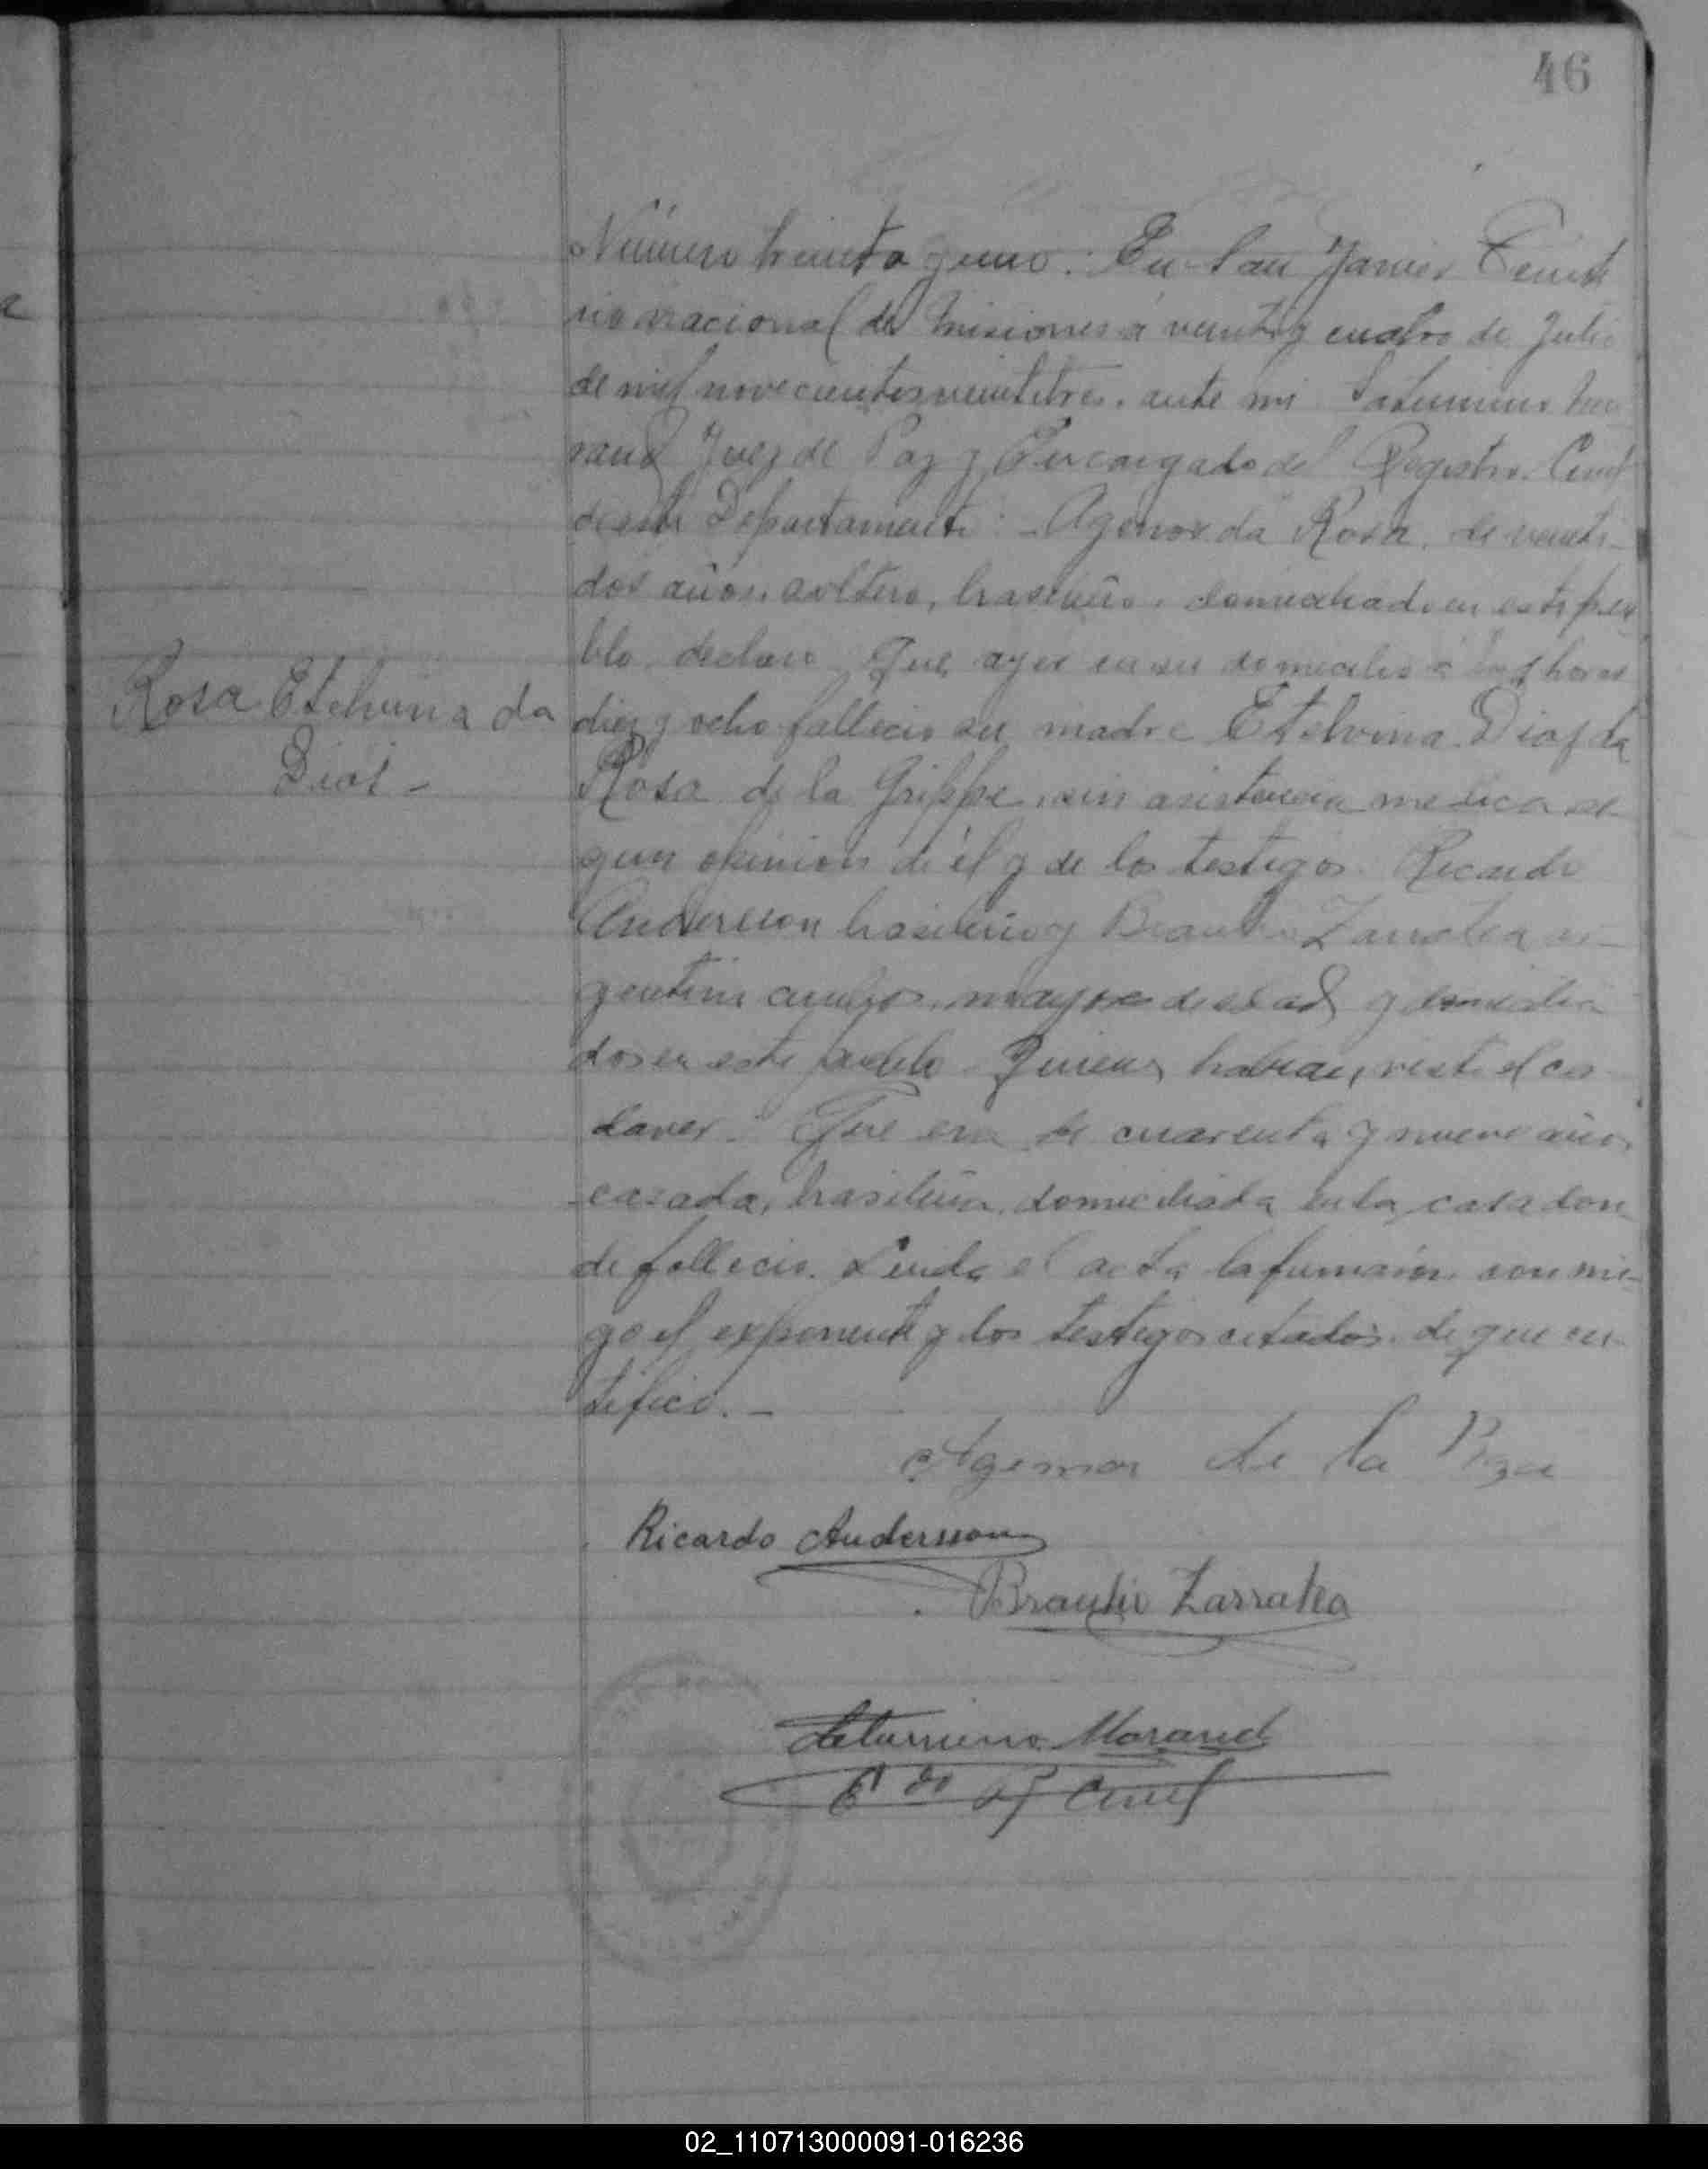 46
Número treinta y uno: En San Javier Territo
rio nacional de Misiones á veinte y cuatro de Julio
de mil novecientos veintitres, ante mi Saturnino Mo
rand Juez de Paz y Encargado del Registro Civil
de este Departamento: - Agenor da Rosa, de veinti-
dos años, soltero, brasileño, domiciliado en este pue
blo declaro Que ayer en su domicilio á las horas
diez y ocho fallecio su madre Etelvina Dias da
Rosa de la Grippe, sin asistencia medica se-
gun opinion de él y de los testigos Ricardo
Andersson brasileño y Braulio Zarratea ar-
gentino mayores de edad y domicilia
dos en este pueblo Quienes habian visto el ca
daver. Que era de cuarenta y nueve años
casada, brasileña, domiciliada en la casa don-
de fallecio. Leida el acta la firmaron conmi-
go el exponente y los testigos citados de que cer
tifico. -
Rosa Etelvina da
Dias -
Agenor de la Roza
Ricardo Andersson
Braulio Zarratea
Saturnino Morand
E do R Civil
02_110713000091-016236